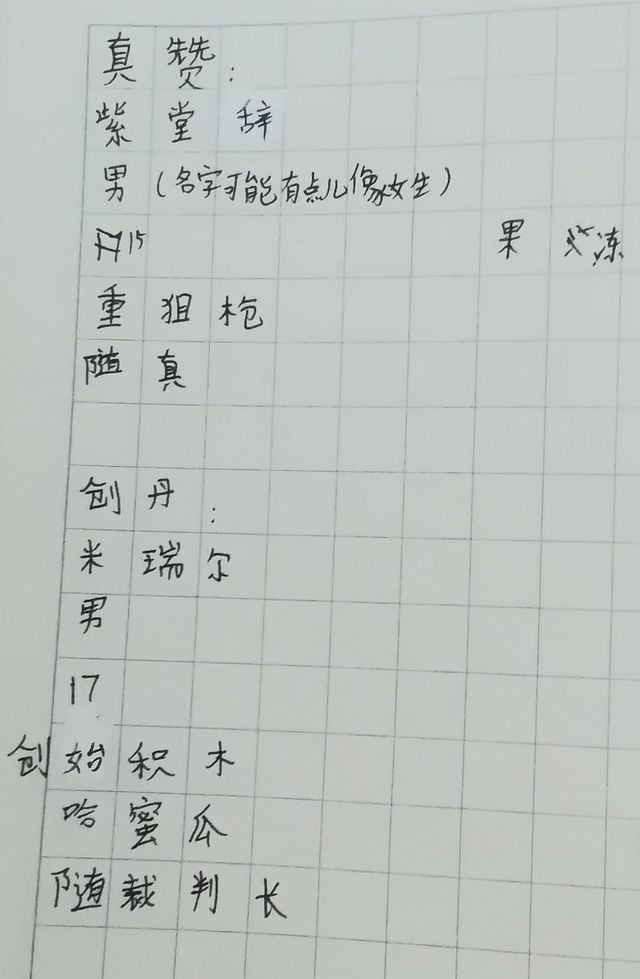 真赞:
紫堂辞
男(名字可能有点儿像女生)
15
果 冻
重狙枪
随真
创丹:
米瑞尔
男
17
创始积木
哈蜜瓜
随裁判长